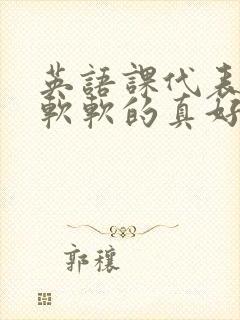 英語課代表
軟軟的真好
郭穰